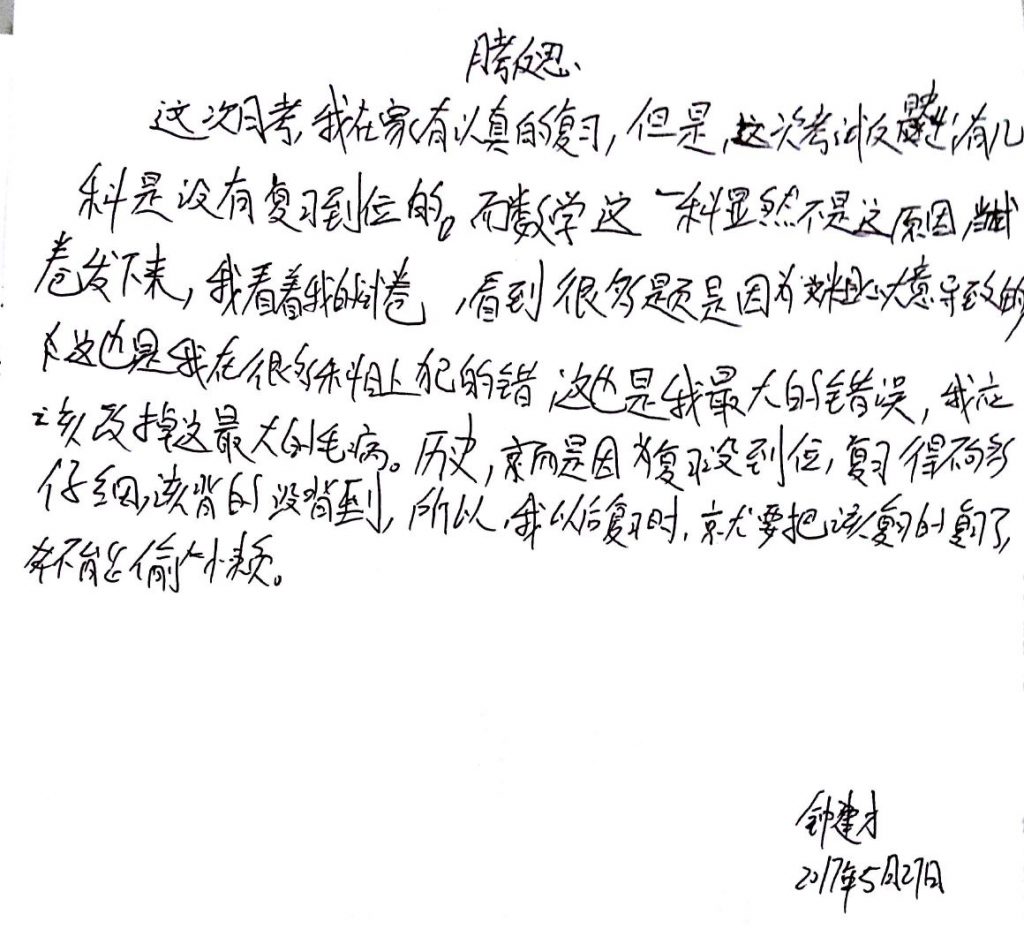 月考反思
这次月考,我在家有认真的复习,但是,这次考试反映,有几
科是没有复习到位的。而数学这一科显然不是这原因,当试
卷发下来,我看着我的试卷,看到很多题是因为粗心大意导致的
,这也是我在很多科目上犯的错,这也是我最大的错误,我应
该改掉这最大的毛病。历史,是因为复习没到位,复习得不够
仔细,该背的没背到,所以,我以后复习时,就要把该复习的复习了,
不能偷懒。
钟建才
2017年5月27日